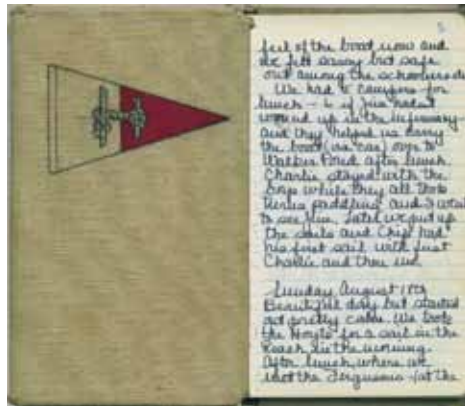 feel of the boat now and
we felt savvy but safe
out among the schooners
We had 5 campers for
lunch - 6 if Jim hadn't
wound up in the infirmary
and they helped us carry
the boat (via car) over to
Walker Pond after lunch.
Charlie stayed with the
boys while they all took
turns paddling and I went
to see Jim. Later we put up
the sails and Chip had
his first sail with just
Charlie and then me.
Sunday August
Beautiful day but started
out pretty calm. We took
the Hoyts for a sail in the
Reach in the morning.
After lunch where we
met the Fergusons (at the